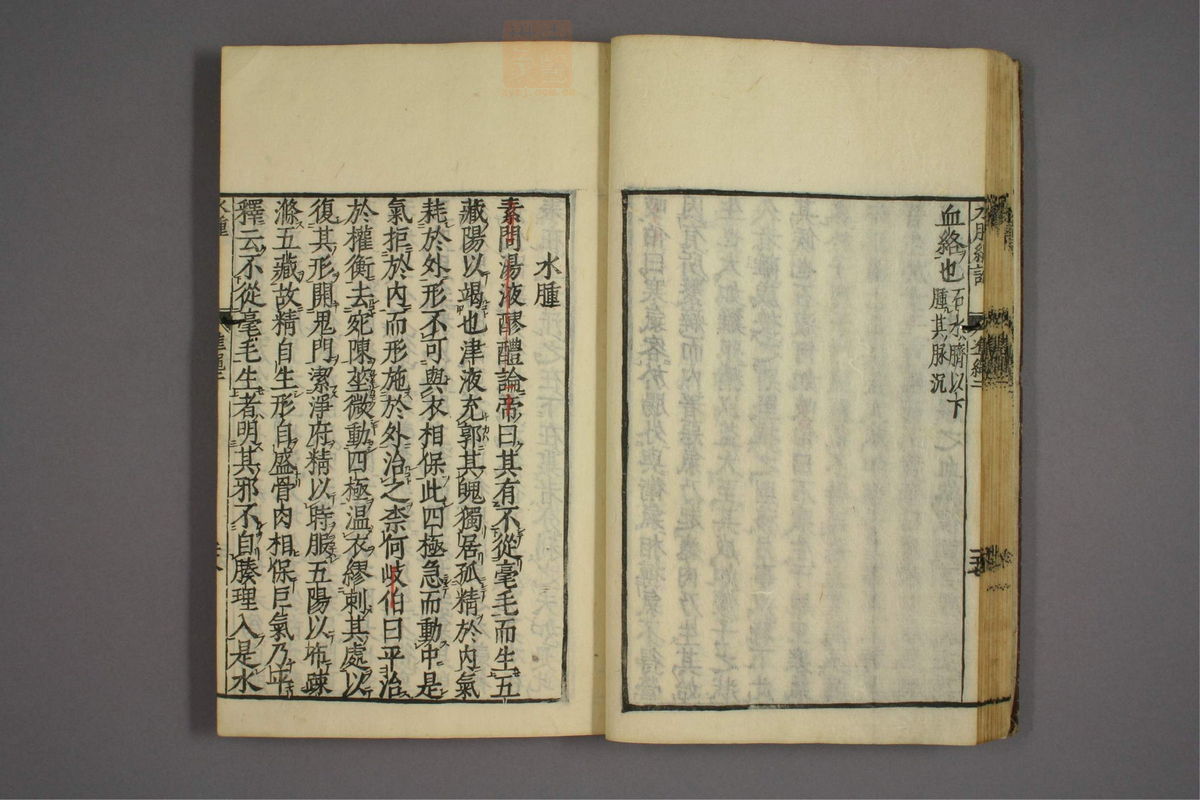 血絡也石水臍以下
腫其脉沉
水腫
素問湯液醪醴論帝曰其有不從毫毛而生五
藏陽以竭也津液充郭其魄獨居孤精於内氣
耗於外形不可與衣相保此四極急而動中是
氣拒於内而形施於外治之柰何岐伯曰平治
於權衡去宛陳莝微動四極温衣繆刺其處以
復其形開鬼門潔淨府精以時服五陽以布疎
滌五藏故精自生形自盛骨肉相保巨氣乃平
釋云不從毫毛生者明其邪不自腠理入是水